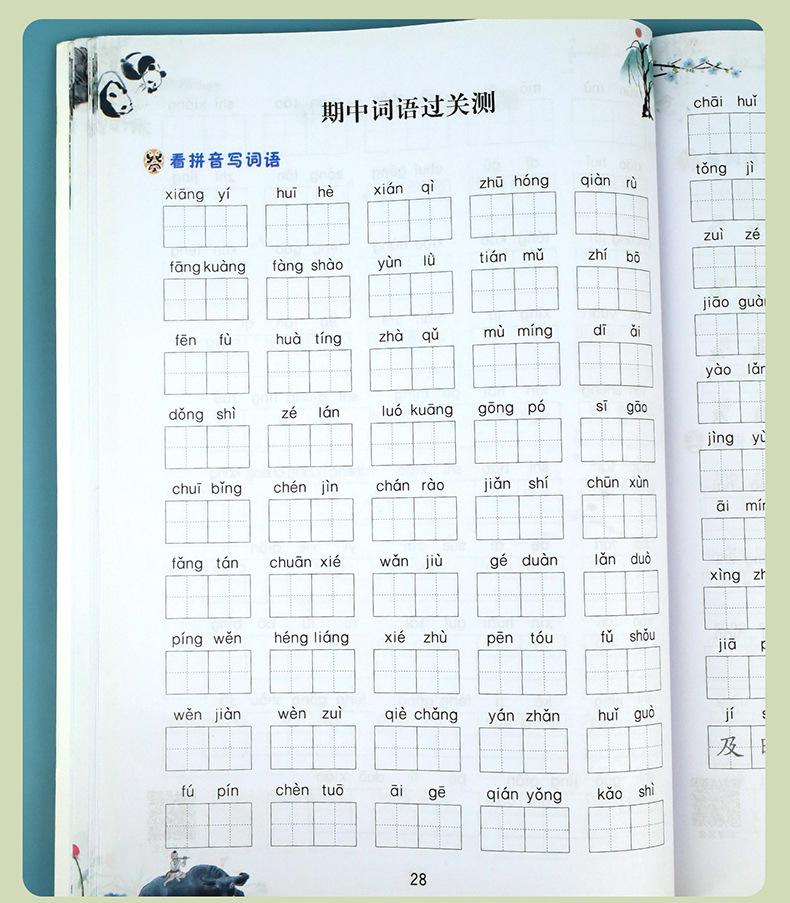 期中词语过关测
看拼音写词语
xiāng yí huī hè xián qì zhū hóng qiàn rù
fāng kuàng fàng shào yùn lǜ tián mǔ zhí bō
fēn fù huà tíng zhà qǔ mù míng dī ǎi
dǒng shì zé lán luó kuāng gōng pó sī gāo
chuī bǐng chén jìn chán rào jiǎn shí chūn xùn
fǎng tán chuān xié wǎn jiù gé duàn lǎn duò
píng wěn héng liáng xié zhù pēn tóu fǔ shǒu
wěn jiàn wèn zuì qiè chǎng yán zhǎn huǐ guò
fú pín chèn tuō āi gē qián yǒng kǎo shì
28
chāi huǐ
tǒng jì
zuì zé
jiāo
yào
jìng
āi
xìng
jiā
jí
及